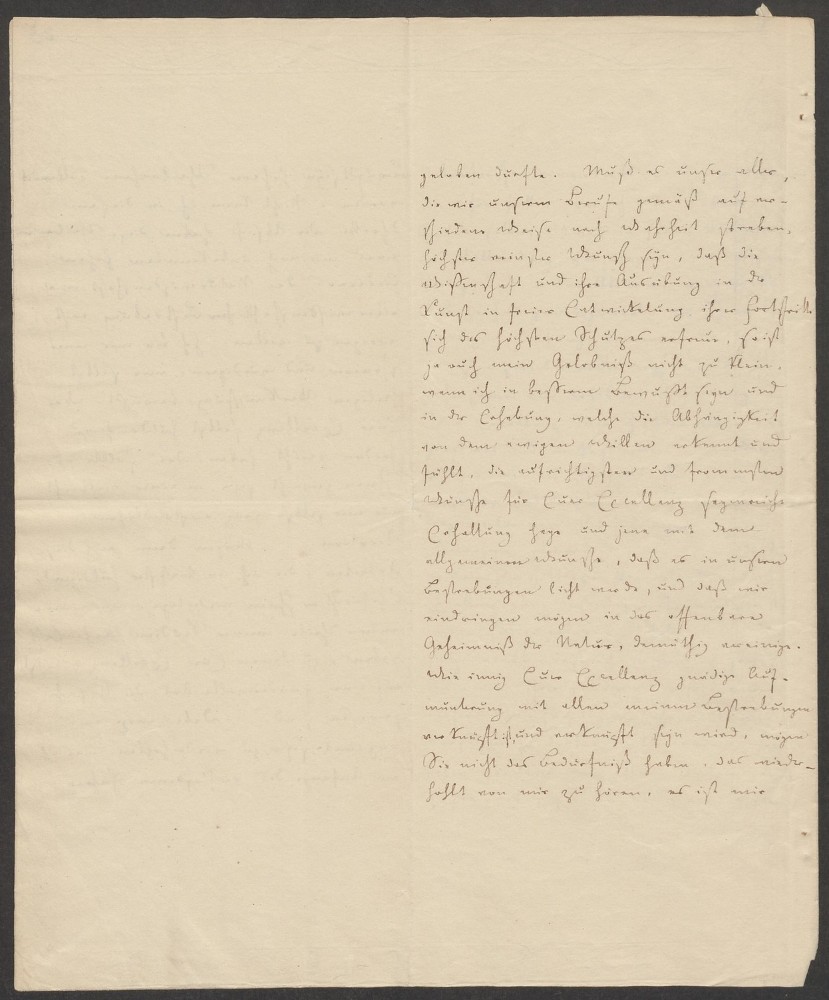 geloben durfte. Muß es unser aller,
die wir unserem Berufe gemäß auf ver-
schiedene Weise nach Wahrheit streben,
höchster reinster Wunsch seyn, daß die
Wissenschaft und ihre Ausübung in der
Kunst in freier Entwickelung ihrer Fortschritte
sich des höchsten Schutzes erfreue, so ist
ja auch mein Gelöbniß nicht zu klein,
wenn ich in besserem Bewußtseyn und
in der Erhebung, welche die Abhängigkeit
von dem ewigen Willen erkennt und
fühlt, die aufrichtigsten und frommsten
Wünsche für Euer Excellenz segensreiche
Erhaltung hege und jene mit dem
allgemeinen Wunsche, daß es in unsern
Bestrebungen licht werde, und daß wir
eindringen mögen in das offenbare
Geheimniß der Natur, demüthig vereinige.
Wie innig Euer Excellenz gnädige Auf-
munterung mit allen meinen Bestrebungen
verknüpft ist, und verknüpft seyn wird, mögen
Sie nicht das Bedürfniß haben, das wieder-
hohlt von mir zu hören, es ist mir